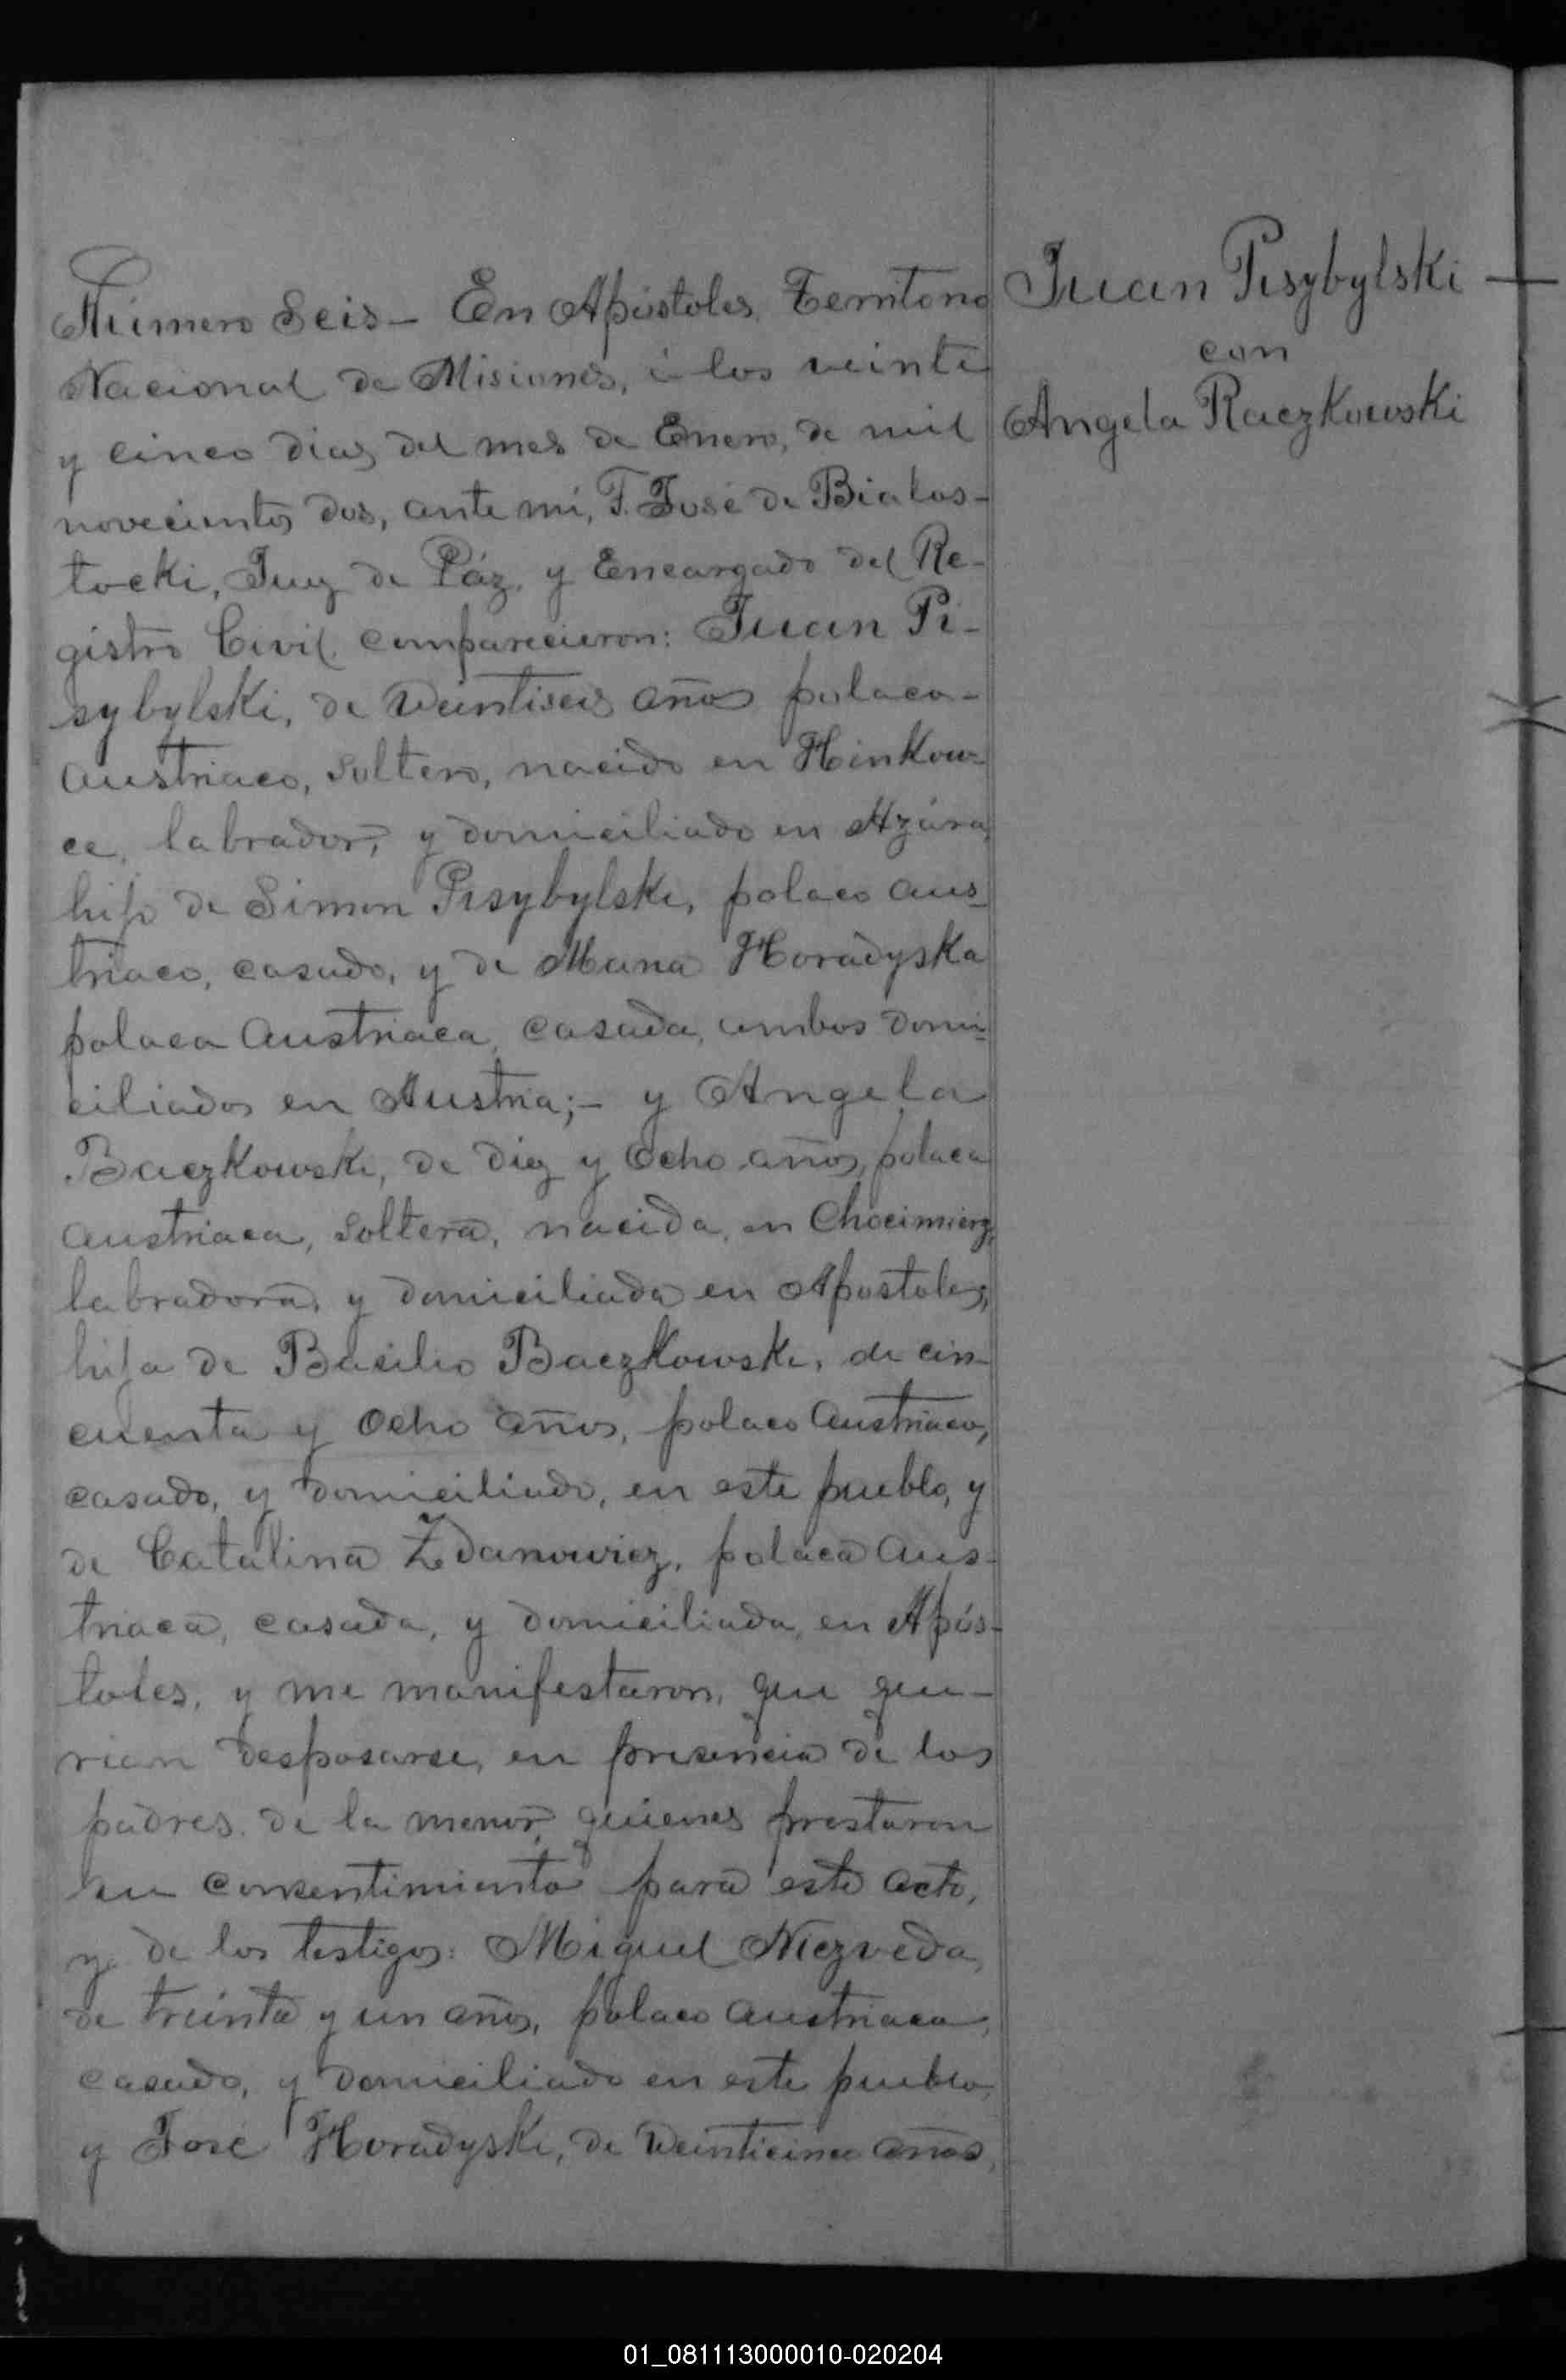 Número Seis - En Apóstoles, Territorio
Nacional de Misiones, á los veinte
y cinco dias, del mes de Enero, de mil
novecientos dos, ante mi, F. José de Bialos-
tocki, Juez de Páz, y Encargado del Re-
gistro Civil comparecieron: Juan Pi-
sybylski, de veintiseis años polaco-
austriaco, soltero, nacido en Hinkow-
ce, labrador, y domiciliado en Azára,
hijo de Simon Pisybylski, polaco aus-
triaco, casado, y de Maria Horadyska
polaca austriaca, casada, ambos domi-
ciliados en Austria;- y Angela
Baczkowski, de diez y ocho años, polaca
austriaca, soltera, nacida, en Chocimierz,
labradora, y domiciliada en Apostoles,
hija de Basilio Baczkowski, de cin-
cuenta y ocho años, polaco austriaco,
casado, y domiciliado, en este pueblo, y
de Catalina Zdanowicz, polaca aus-
triaca, casada, y domiciliada, en Após-
toles, y me manifestaron, que que-
rian desposarse, en presencia de los
padres de la menor, quienes prestaron
su consentimiento para este acto,
y de los testigos: Miguel Niezveda,
de treinta y un años, polaco austriaco,
casado, y domiciliado en este pueblo,
y José Horadyski, de veinticinco años,
Juan Pisybylski
con
Angela Raczkowski
01_081113000010-020204